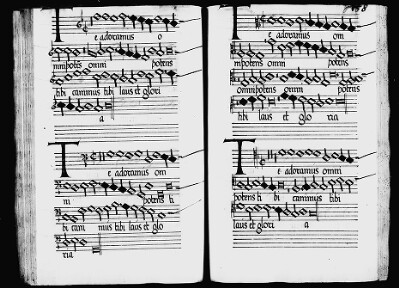 Te adoramus o
mnipotens omni potens
tibi canimus tibi laus et glori
a
Te adoramus om
ni potens ti
bi cani mus tibi laus et glo
ria
Te adoramus om
nipotens omni potens
omnipotens potens
tibi laus et glo ria
Te adoramus omni
potens ti bi canimus tibi
laus et glori a